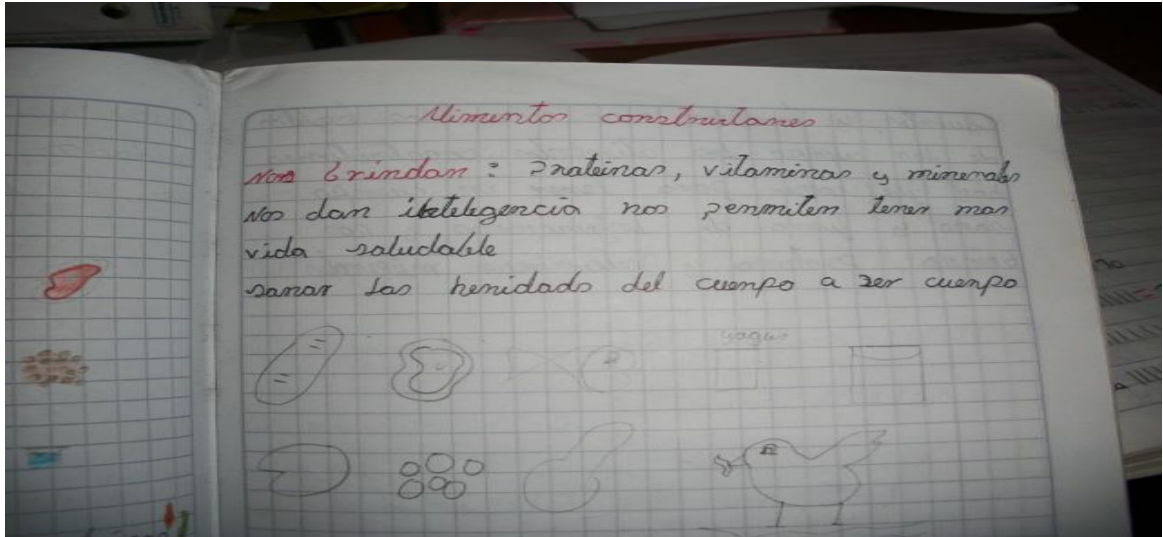 Alimentos constructores
Nos brindan : Proteinas, vitaminas y minerales
Nos dan inteligencia nos permiten tener mas
vida saludable
sanar las heridado del cuerpo a ser cuerpo
yogur